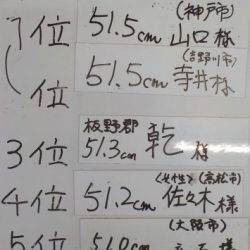 (神戸市)
1位 51.5cm 山口様
(吉野川市)
位 51.5cm 寺井様
板野郡
3位 51.3cm 乾様
(女性)(高松市)
4位 51.2cm 佐々木様
(大阪市)
5位